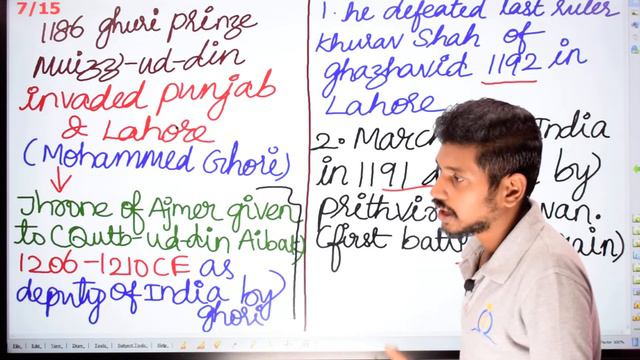 7/15
1186 ghuri prinze
Muizz-ud-din
invaded punjab
& Lahore
(Mohammed Ghori)
Throne of Ajmer given
to (Qutb-ud-din Aibak)
1206-1210 CE as
deputy of India by
ghori
1. he defeated last ruler
Khurav Shah of
ghazhavid 1192 in
Lahore
2. March India
in 1191 by
Prithvir
(first